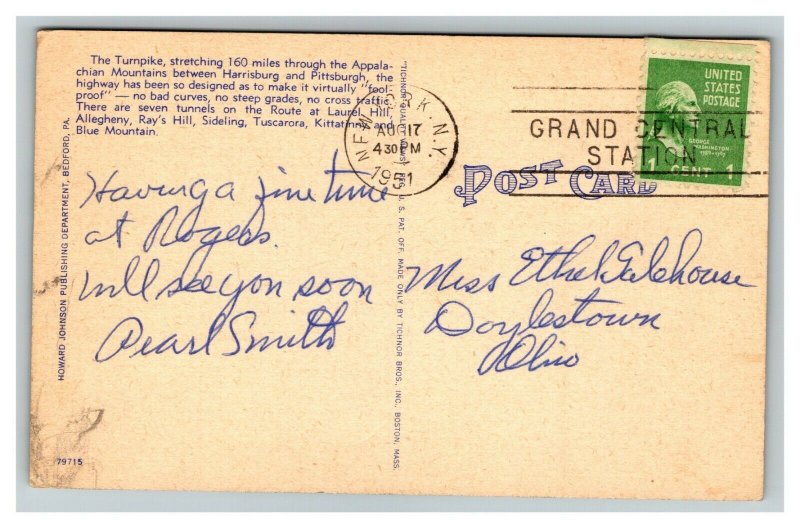 The Turnpike, stretching 160 miles through the Appala-
chian Mountains between Harrisburg and Pittsburgh, the
highway has been so designed as to make it virtually "fool-
proof" — no bad curves, no steep grades, no cross traffic.
There are seven tunnels on the Route at Laurel Hill,
Allegheny, Ray's Hill, Sideling, Tuscarora, Kittatinny and
Blue Mountain.
Having a fine time
at Rogers.
Will see you soon
Pearl Smith
HOWARD JOHNSON PUBLISHING DEPARTMENT, BEDFORD, PA.
79715
"TICHNOR QUALITY VIEWS" REG. U. S. PAT. OFF. MADE ONLY BY TICHNOR BROS., INC., BOSTON, MASS.
NEW YORK, N.Y.
AUG 17
4 30 PM
1951
GRAND CENTRAL
STATION
UNITED
STATES
POSTAGE
GEORGE
WASHINGTON
1789-1797
1 CENT 1
POST CARD
Miss Ethel
Doylestown
Ohio